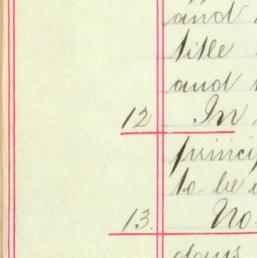 and
title
and
12 In
princip
to be
13. No
days